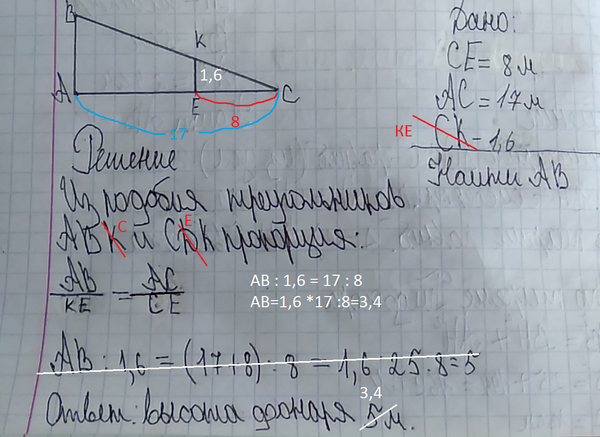 Дано:
CE = 8 м
AC = 17 м
KE CK - 1,6
Найти AB
B
K
1,6
A
E
C
8
17
Решение
Из подобия треугольников
ABK C и CDK E пропорция:
AB/KE = AC/CE
AB : 1,6 = 17 : 8
AB=1,6 *17 :8=3,4
AB : 1,6 = (17+8) : 8 = 1,6 · 25 : 8 = 5
3,4
Ответ: высота фонаря 5 м.